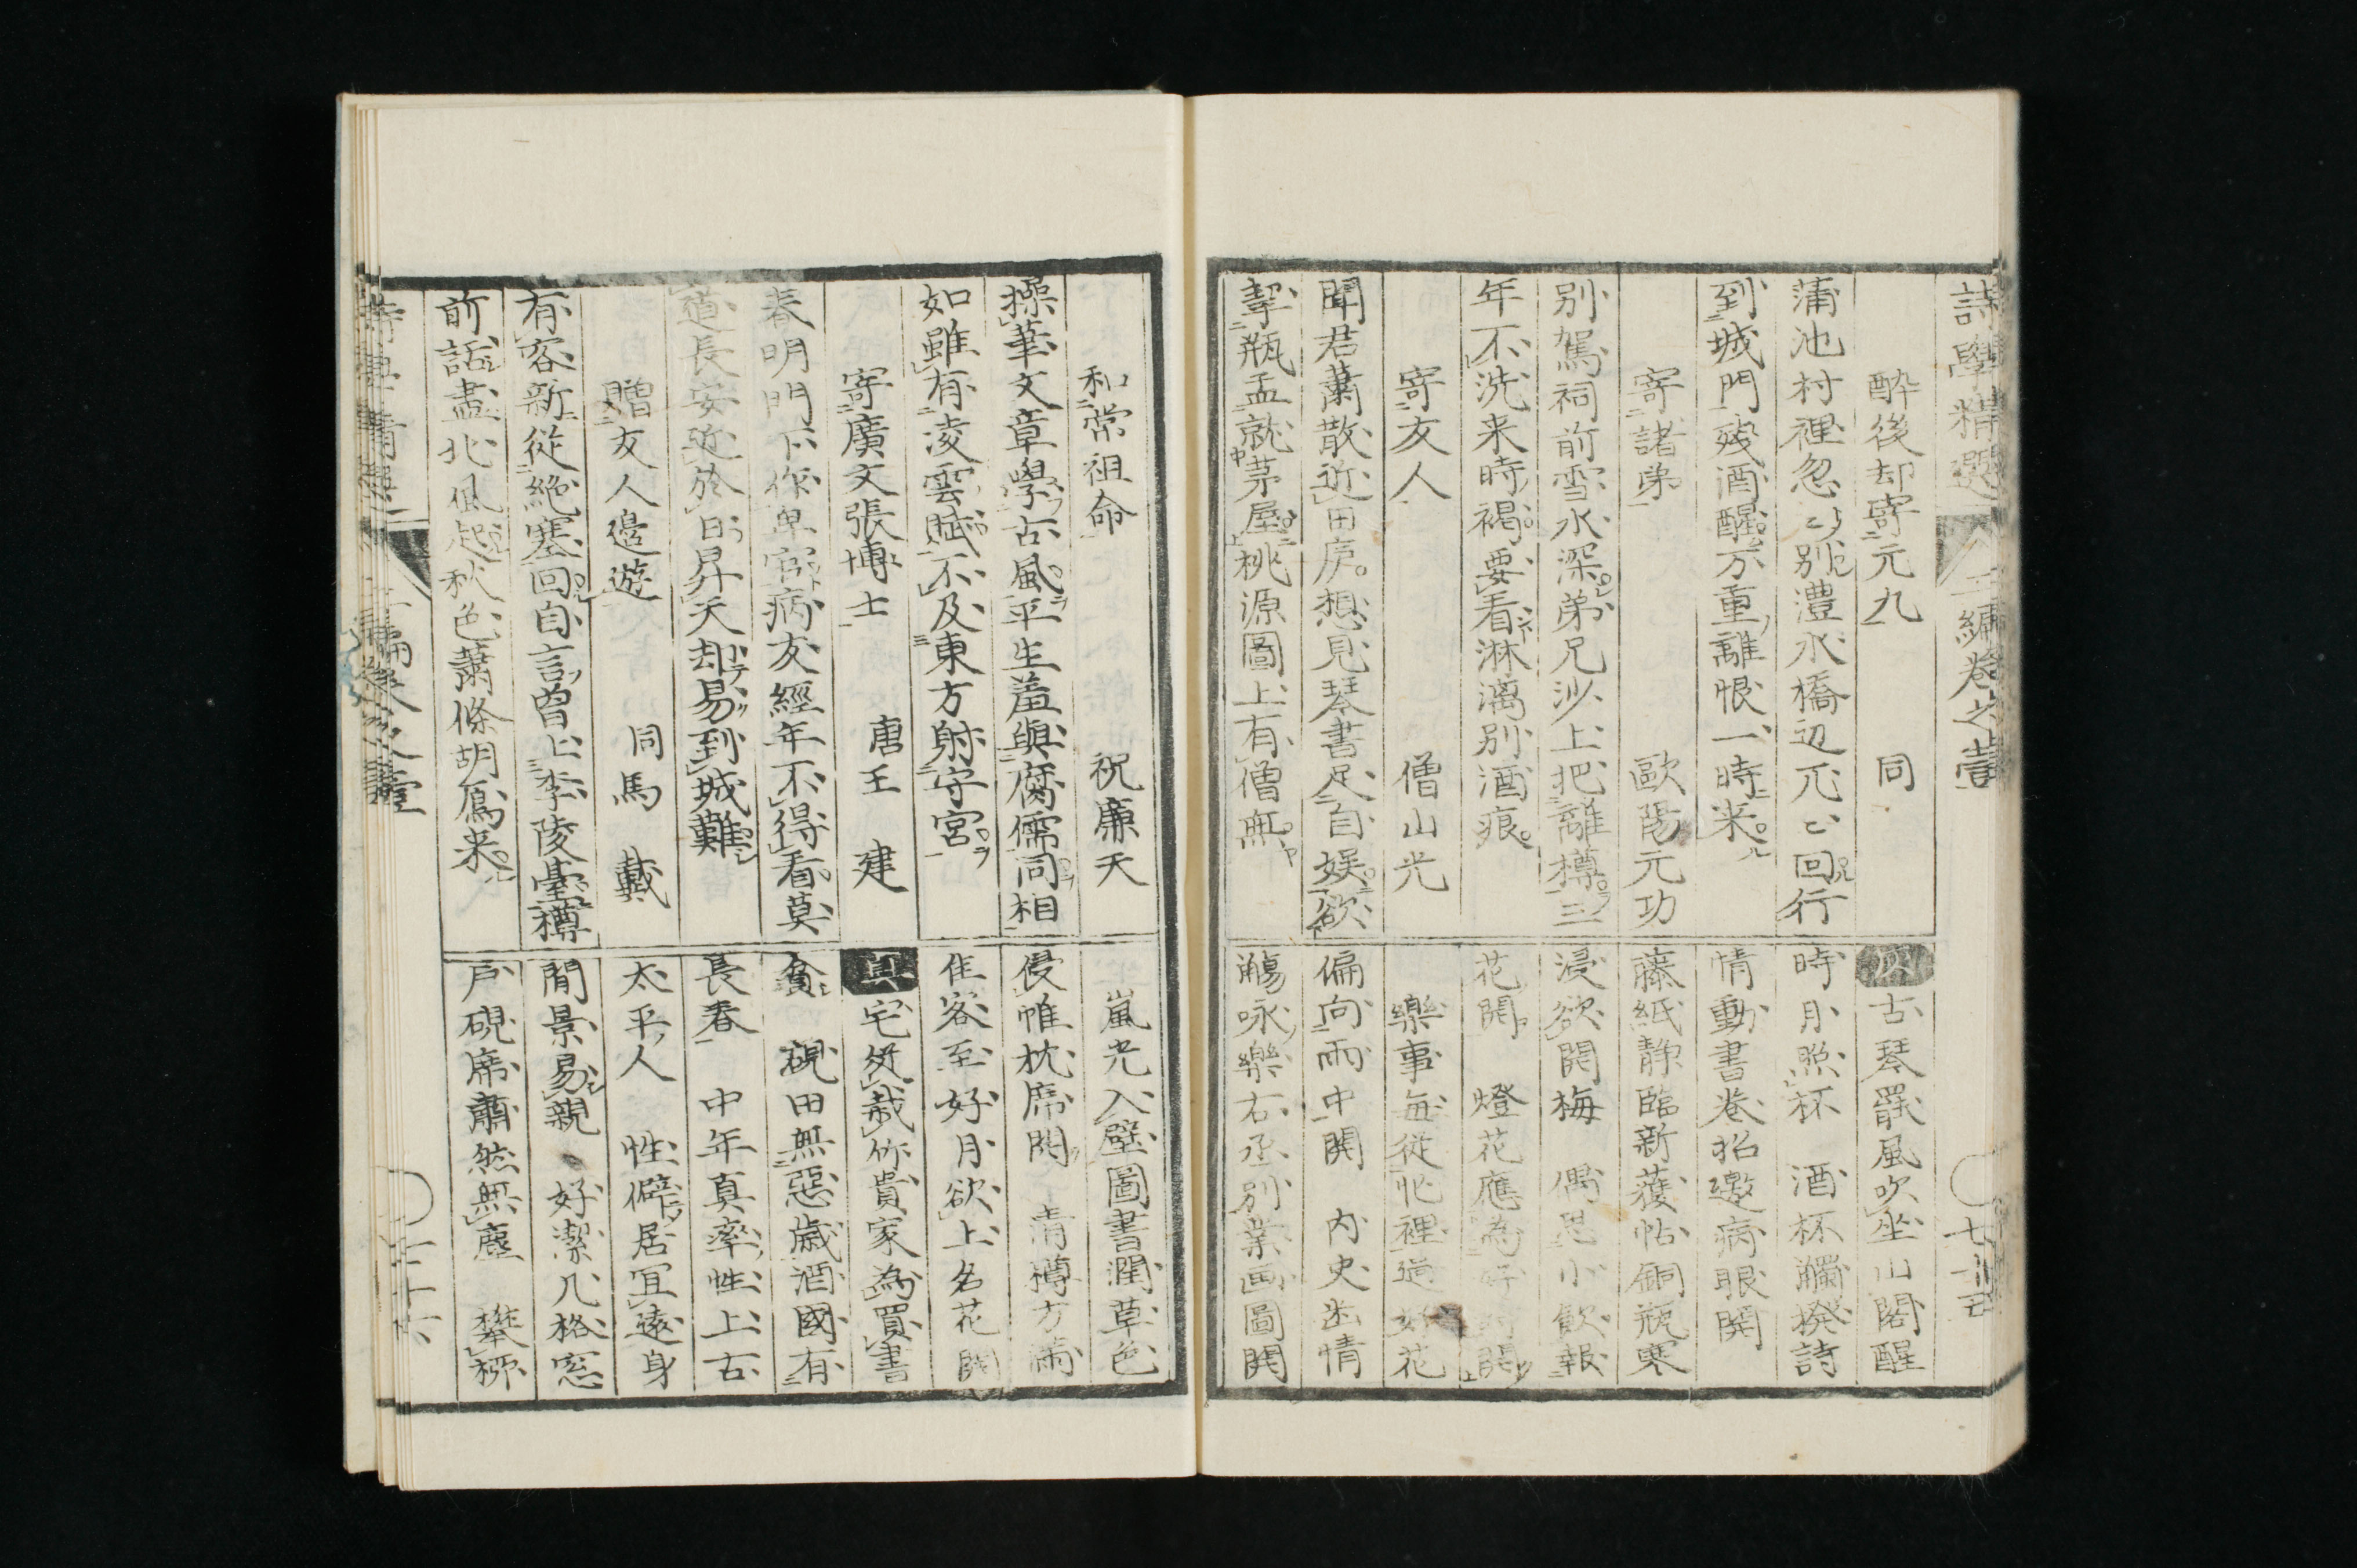 詩學精選 二編卷之壹 七十五
醉後却寄元九 同
蒲池村裡忽〻別澧水橋辺兀〻回行
到城門殘酒醒万重離恨一時来
寄諸弟 歐陽元功
別駕祠前雪水深弟兄沙上把離樽三
年不洗来時褐要看淋漓別酒痕
寄友人 僧山光
聞君蕭散近田庐想見琴書足自娯欲
挈瓶盂就茅屋桃源圖上有僧無
古琴罷風吹坐山閣醒
時月照杯 酒杯觸撥詩
情動書卷招邀病眼開
藤紙靜臨新獲帖銅瓶寒
浸欲開梅 偶思小飲報
花開 燈花應為好詩開
樂事每從忙裡過好花
偏向雨中開 内史幽情
觴咏樂右丞別業画圖開
和常祖命 祝廉天
操筆文章學古風平生羞與腐儒同相
如雖有凌雲賦不及東方射守宮
寄廣文張博士 唐王建
春明門下作卑官病友經年不得看莫
道長安近於日昇天却易到城難
贈友人邊遊 同馬戴
有客新從絶塞回自言曽上李陵臺樽
前話盡北風起秋色蕭條胡鳫来
嵐光入壁圖書潤草色
侵帷枕席閑 清樽方滿
佳客至好月欲上名花開
眞 宅從栽作貴家為買書
貧 硯田無惡歲酒國有
長春 中年真率性上古
太平人 性僻居冝遠身
閒景易親 好潔几格窓
戶硯席肅然無塵 攀柳
詩學精選 二編卷之壹